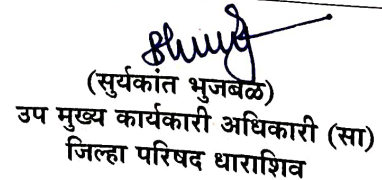 (सुर्यकांत भुजबळ)
उप मुख्य कार्यकारी अधिकारी (सा)
जिल्हा परिषद धाराशिव